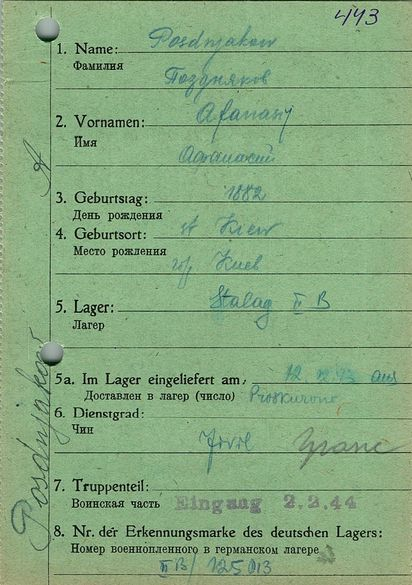 443
1. Name: Posdnjakow
Фамилия
Поздняков
2. Vornamen: Afanasij
Имя
Афанасий
3. Geburtstag: 1882
День рождения
4. Geburtsort: st Kiew
Место рожления
гор Киев
5. Lager: Stalag II B
Лагерь
5a. Im Lager eingeliefert am: 12. 43 aus
Доставлен в лагерь (число) Proskurow
6. Dienstgrad:
Чин
Zivil
7. Truppenteil:
Воинская часть Eingang 2.2.44
8. Nr. der Erkennungsmarke des deutschen Lagers:
Номер военнопленного в германском лагере
II B/ 125013
Posdnjakow A